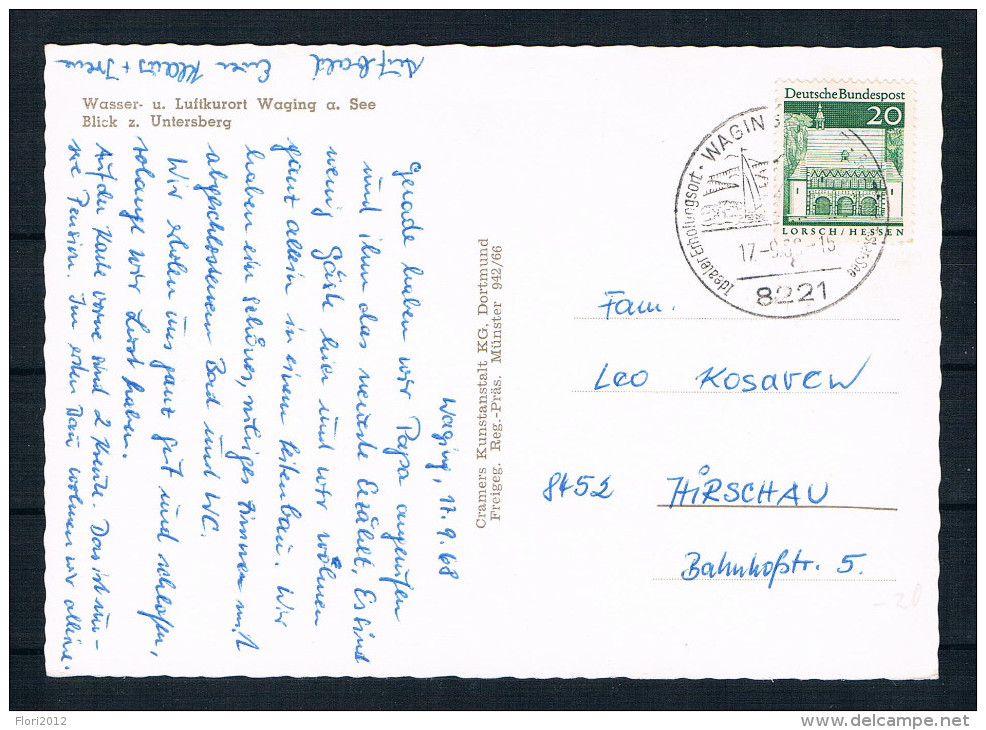 Wasser- u. Luftkurort Waging a. See
Blick z. Untersberg
Waging, 17.9.68
Gerade haben wir Papa angerufen
und ihm das neueste Erzählt. Es sind
wenig Gäste hier und wir wohnen
ganz allein in einem Seitenbau. Wir
haben ein schönes, ruhiges Zimmer mit
abgeschlossenem Bad und WC.
Wir erholen uns ganz gut und schlafen,
solange wir Lust haben.
Auf der Karte vorne sind 2 Kreuze. Das ist un-
sere Pension. Im ersten Bau wohnen wir alleine.
Auf bald Eure Klaus + Irene
Cramers Kunstanstalt KG, Dortmund
Freigeg. Reg.-Präs. Münster 942/66
Deutsche Bundespost
20
LORSCH/HESSEN
Idealer Erholungsort · WAGING
17.-9.68-16
8221
Fam.
Leo Kosarew
8452 HIRSCHAU
Bahnhofstr. 5.
Flori2012
www.delcampe.net